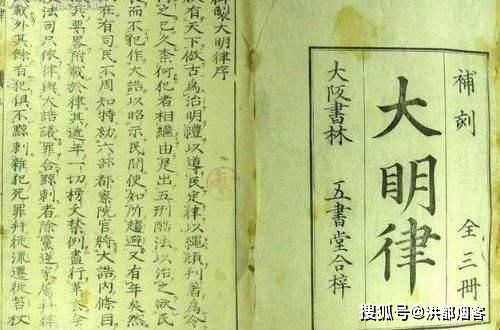 補刻 全三冊
大明律
大阪書林 五書堂合梓
御製大明律序
有天下倣古為治明禮以導民定律以繩頑刊著為令
之已久奈何犯者相繼由是出五刑酷法以治之欲民
而不犯作大誥以昭示民間使知所趨避又有年矣然
在有司民不周知特勅六部都察院官將大誥內條目
其要畧附載於律其遞年一切榜文禁例盡行革去今
法司只依律與大誥議罪合黥刺者除黨逆家屬并律
載外其餘有犯俱不黥刺雜犯死罪并徒流遷徙笞杖
搜狐号@洪都烟客